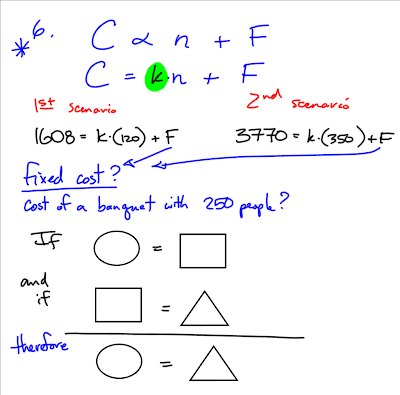 * 6. C ∝ n + F
C = k·n + F
1st scenario 2nd scenario
1608 = k·(120) + F 3770 = k·(350) + F
fixed cost?
cost of a banquet with 250 people?
If =
and
if =
therefore =